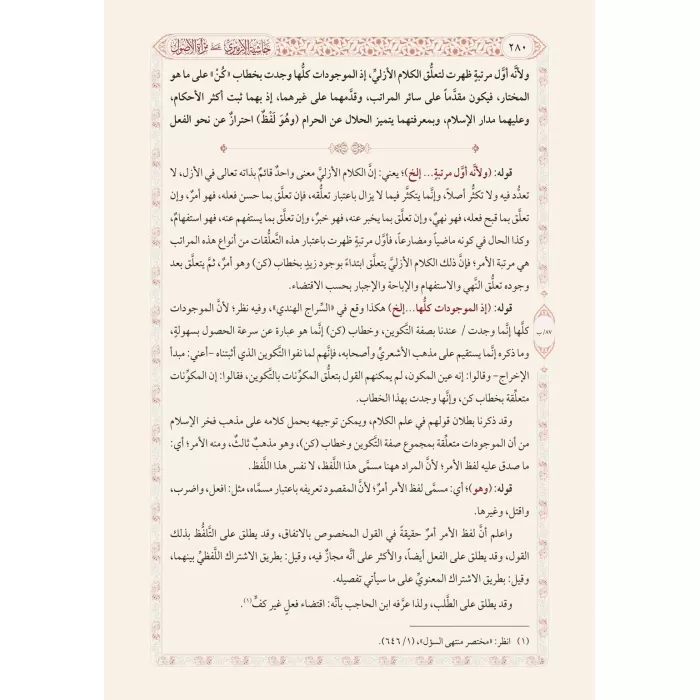 ٢٨٠
حاشية الإزميري على مرآة الأصول
ولأنَّه أوَّل مرتبةٍ ظهرت لتعلُّق الكلام الأزليِّ، إذ الموجودات كلُّها وجدت بخطاب «كُنْ» على ما هو
المختار، فيكون مقدَّماً على سائر المراتب، وقدَّمهما على غيرهما، إذ بهما ثبت أكثر الأحكام،
وعليهما مدار الإسلام، وبمعرفتهما يتميز الحلال عن الحرام (وهُوَ لَفْظٌ) احترازٌ عن نحو الفعل
قوله: (ولأنَّه أوَّل مرتبةٍ... إلخ)؛ يعني: إنَّ الكلام الأزليَّ معنى واحدٌ قائمٌ بذاته تعالى في الأزل، لا
تعدُّد فيه ولا تكثُّر أصلاً، وإنَّما يتكثَّر فيما لا يزال باعتبار تعلُّقه، فإن تعلَّق بما حسن فعله، فهو أمرٌ، وإن
تعلَّق بما قبح فعله، فهو نهيٌ، وإن تعلَّق بما يخبر عنه، فهو خبرٌ، وإن تعلَّق بما يستفهم عنه، فهو استفهامٌ،
وكذا الحال في كونه ماضياً ومضارعاً، فأوَّل مرتبة ظهرت باعتبار هذه التَّعلُّقات من أنواع هذه المراتب
هي مرتبة الأمر؛ فإنَّ ذلك الكلام الأزليَّ يتعلَّق ابتداءً بوجود زيدٍ بخطاب (كن) وهو أمرٌ، ثمَّ يتعلَّق بعد
وجوده تعلُّق النَّهي والاستفهام والإباحة والإجبار بحسب الاقتضاء.
قوله: (إذ الموجودات كلُّها...إلخ) هكذا وقع في «السِّراج الهندي»، وفيه نظر؛ لأنَّ الموجودات
كلَّها إنَّما وجدت / عندنا بصفة التَّكوين، وخطاب (كن) إنَّما هو عبارة عن سرعة الحصول بسهولةٍ،
٨٧/ ب
وما ذكره إنَّما يستقيم على مذهب الأشعريِّ وأصحابه، فإنَّهم لما نفوا التَّكوين الذي أثبتناه -أعني: مبدأ
الإخراج- وقالوا: إنه عين المكون، لم يمكنهم القول بتعلُّق المكوِّنات بالتَّكوين، فقالوا: إن المكوِّنات
متعلِّقة بخطاب كن، وإنَّها وجدت بهذا الخطاب.
وقد ذكرنا بطلان قولهم في علم الكلام، ويمكن توجيهه بحمل كلامه على مذهب فخر الإسلام
من أن الموجودات متعلقة بمجموع صفة التَّكوين وخطاب (كن)، وهو مذهبٌ ثالثٌ، ومنه الأمر؛ أي:
ما صدق عليه لفظ الأمر؛ لأنَّ المراد ههنا مسمَّى هذا اللَّفظ، لا نفس هذا اللَّفظ.
قوله: (وهو)؛ أي: مسمَّى لفظ الأمر أمرٌ؛ لأنَّ المقصود تعريفه باعتبار مسمَّاه، مثل: افعل، واضرب،
واقتل، وغيرها.
واعلم أنَّ لفظ الأمر أمرٌ حقيقةً في القول المخصوص بالاتفاق، وقد يطلق على التَّلفُّظ بذلك
القول، وقد يطلق على الفعل أيضاً، والأكثر على أنَّه مجازٌ فيه، وقيل: بطريق الاشتراك اللَّفظيِّ بينهما،
وقيل: بطريق الاشتراك المعنويِّ على ما سيأتي تفصيله.
وقد يطلق على الطَّلب، ولذا عرَّفه ابن الحاجب بأنَّه: اقتضاء فعلٍ غير كفٍّ(١).
(١) انظر: «مختصر منتهى السؤل»، (١/ ٦٤٦).